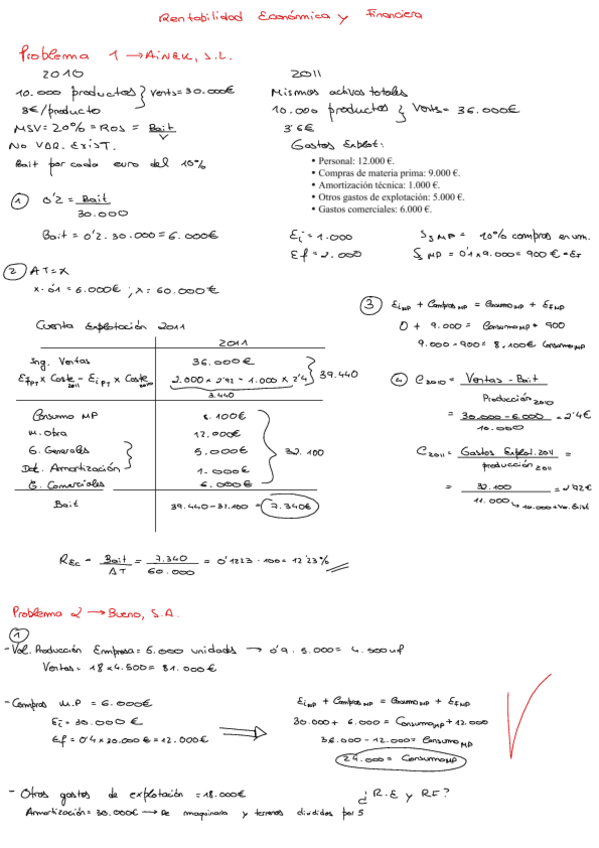 Rentabilidad Económica y Financiera
Problema 1 → AINEK, S.L.
2010
10.000 productos } Vents = 30.000€
3€/producto
MSV = 20% = ROS = Bait / V
No VAR. EXIST.
Bait por cada euro del 10%
① 0'2 = Bait / 30.000
Bait = 0'2 · 30.000 = 6.000€
2011
Mismos activos totales
10.000 productos } Vents = 36.000€
3'6€
Gastos Explot:
• Personal: 12.000 €.
• Compras de materia prima: 9.000 €.
• Amortización técnica: 1.000 €.
• Otros gastos de explotación: 5.000 €.
• Gastos comerciales: 6.000 €.
Ei = 1.000
Ef = 2.000
S MP = 10% compras en um.
S MP = 0'1 x 9.000 = 900 € = EF
② AT = X
x · 0'1 = 6.000€ ; x = 60.000€
③ Ei MP + Compras MP = Consumo MP + EF MP
0 + 9.000 = Consumo MP + 900
9.000 - 900 = 8.100€ Consumo MP
Cuenta Explotación 2011
2011
Ing. Ventas 36.000€
Ef PT x Coste 2011 - Ei PT x Coste 2010 2.000 x 2'92 - 1.000 x 2'4 } 39.440
3.440
Consumo MP 8.100€
M. Obra 12.000€
G. Generales 5.000€
Dot. Amortización 1.000€
G. Comerciales 6.000€
} 32.100
Bait 39.440 - 32.100 = 7.340€
④ C2010 = Ventas - Bait / Producción 2010
= 30.000 - 6.000 / 10.000 = 2'4€
C2011 = Gastos Explot. 2011 / producción 2011 =
= 32.100 / 11.000 = 2'92€
→ 10.000 + Var. Exist
REC = Bait / AT = 7.340 / 60.000 = 0'1223 · 100 = 12'23%
Problema 2 → Bueno, S.A.
①
- Vol. Producción Empresa = 5.000 unidades → 0'9 · 5.000 = 4.500 uf
Ventas = 18 x 4.500 = 81.000€
- Compras M.P = 6.000€
Ei = 30.000€
Ef = 0'4 x 30.000€ = 12.000€
Ei MP + Compras MP = Consumo MP + EF MP
30.000 + 6.000 = Consumo MP + 12.000
36.000 - 12.000 = Consumo MP
24.000 = Consumo MP
- Otros gastos de explotación = 18.000€
¿R.E y RF?
Amortización = 30.000€ → De maquinaria y terrenos divididos por 5